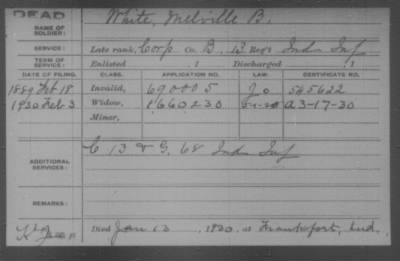 DEAD
NAME OF SOLDIER: White, Melville B.
SERVICE: Late rank, Corp Co. B, 13 Reg't Ind Inf
TERM OF SERVICE: Enlisted , 1 Discharged , 1
DATE OF FILING. CLASS. APPLICATION NO. LAW. CERTIFICATE NO.
1889 Feb 18 Invalid, 690005 545622
1930 Feb 3 Widow, 1660230 A 3-17-30
Minor,
ADDITIONAL SERVICES: C 13 & G. 68 Ind Inf
REMARKS:
Died Jan 12, 1930, at Frankfort, Ind.